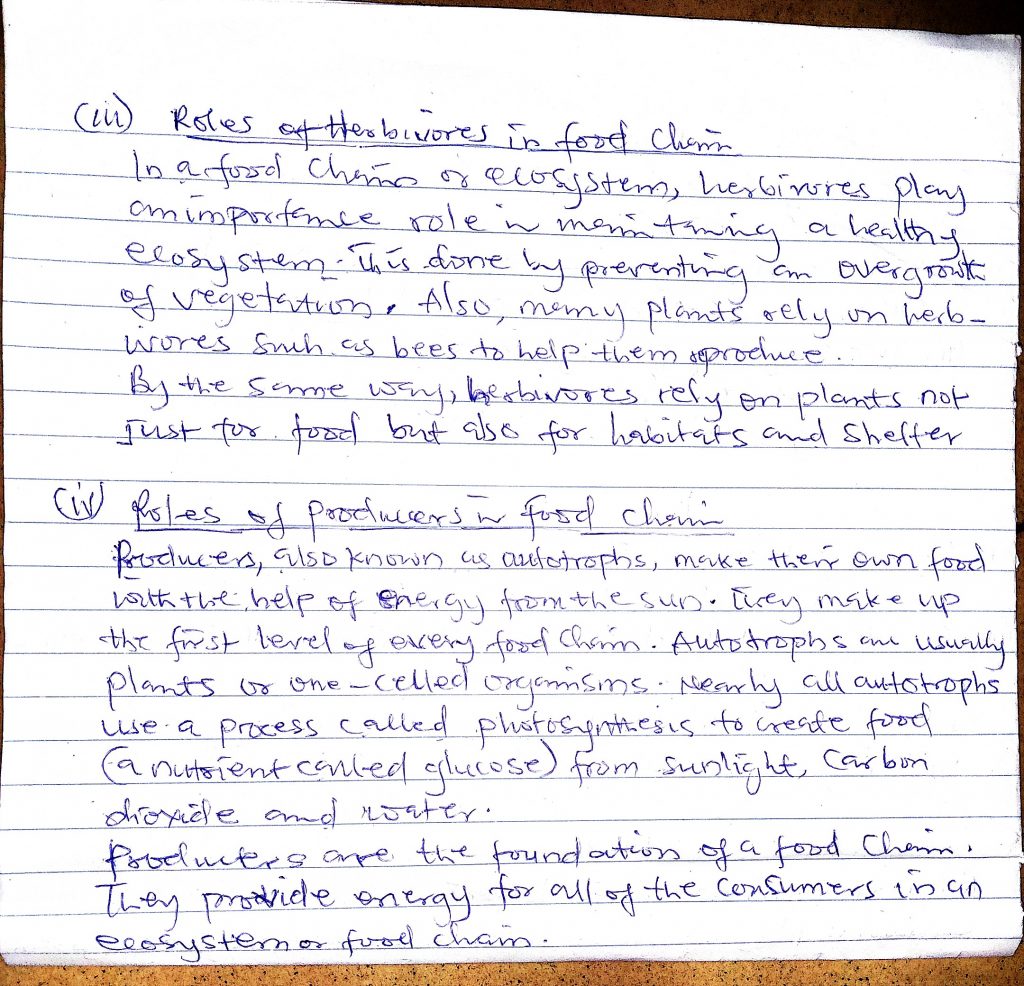 (iii) Roles of Herbivores in food Chain
In a food Chain or ecosystem, herbivores play
an importance role in maintaining a healthy
ecosystem. This done by preventing an overgrowth
of vegetation. Also, many plants rely on herb-
ivores such as bees to help them reproduce.
By the same way, herbivores rely on plants not
Just for food but also for habitats and Shelter
(iv) Roles of producers in food chain
Producers, also known as autotrophs, make their own food
with the help of energy from the sun. They make up
the first level of every food Chain. Autotrophs are usually
plants or one-celled organisms. Nearly all autotrophs
use a process called photosynthesis to create food
(a nutrient called glucose) from sunlight, Carbon
dioxide and water.
Producers are the foundation of a food Chain.
They provide energy for all of the Consumers in an
ecosystem or food chain.